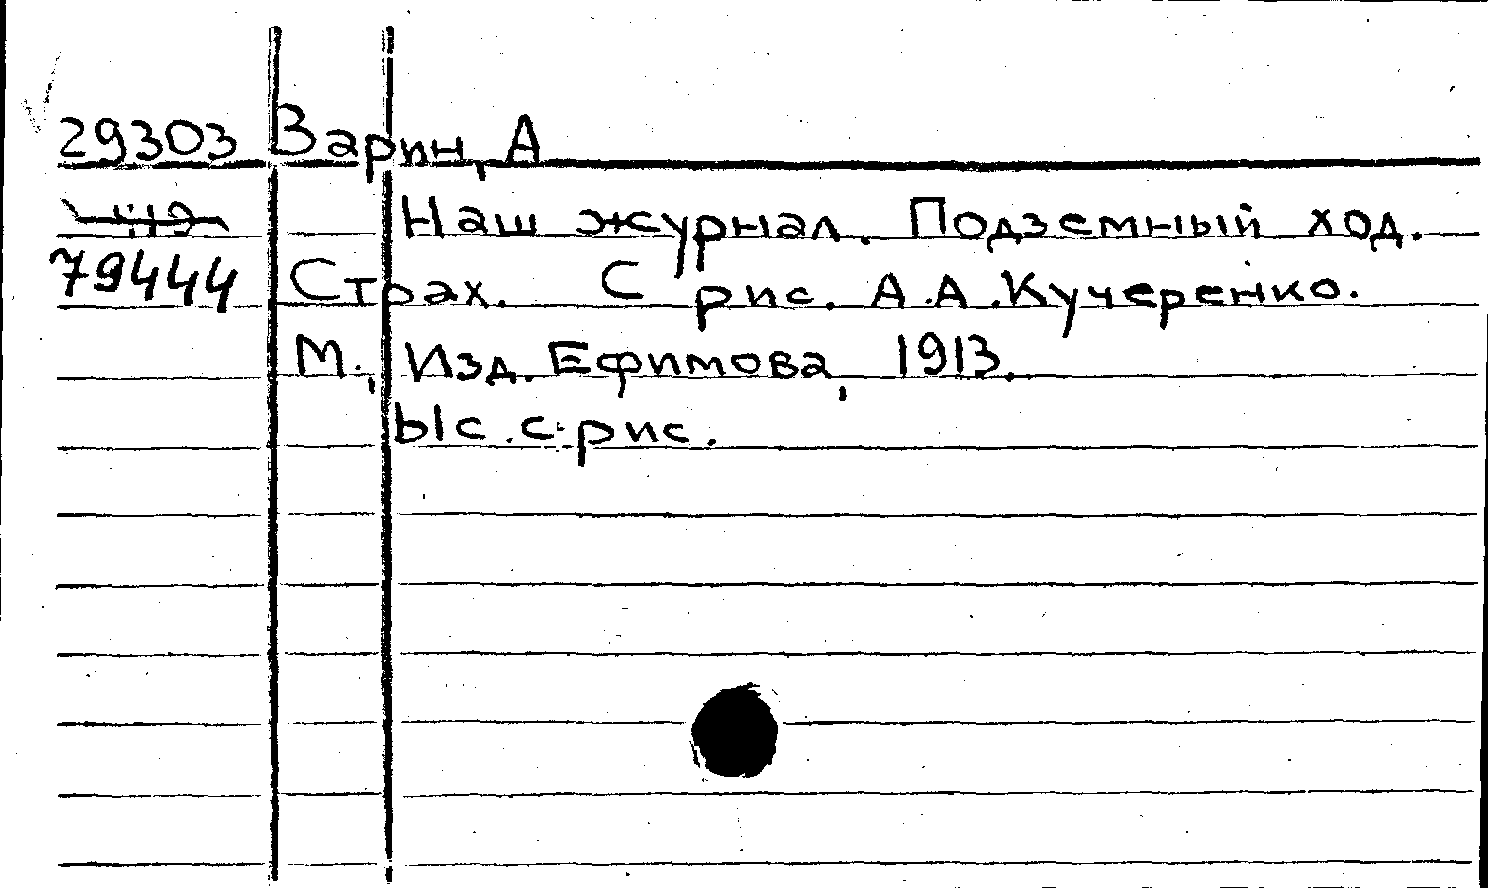 29303 Зарин, А
Наш журнал. Подземный ход.
79444 Страх. С рис. А.А.Кучеренко.
М., Изд. Ефимова, 1913.
с. с рис.